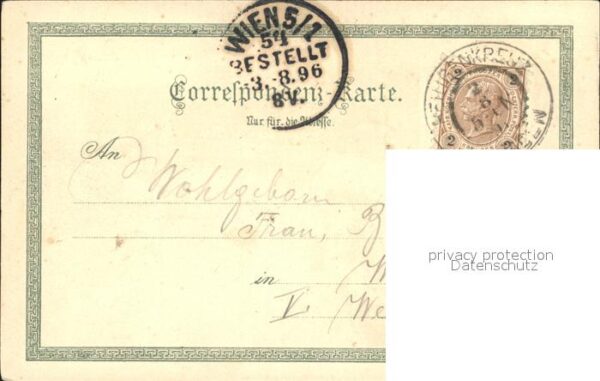 WIEN 5/1
54
BESTELLT
3.-8.96
8V.
Correspondenz-Karte.
Nur für die Adresse.
An
Wohlgeborn
Frau, B
in W
V. We
privacy protection
Datenschutz
2
2